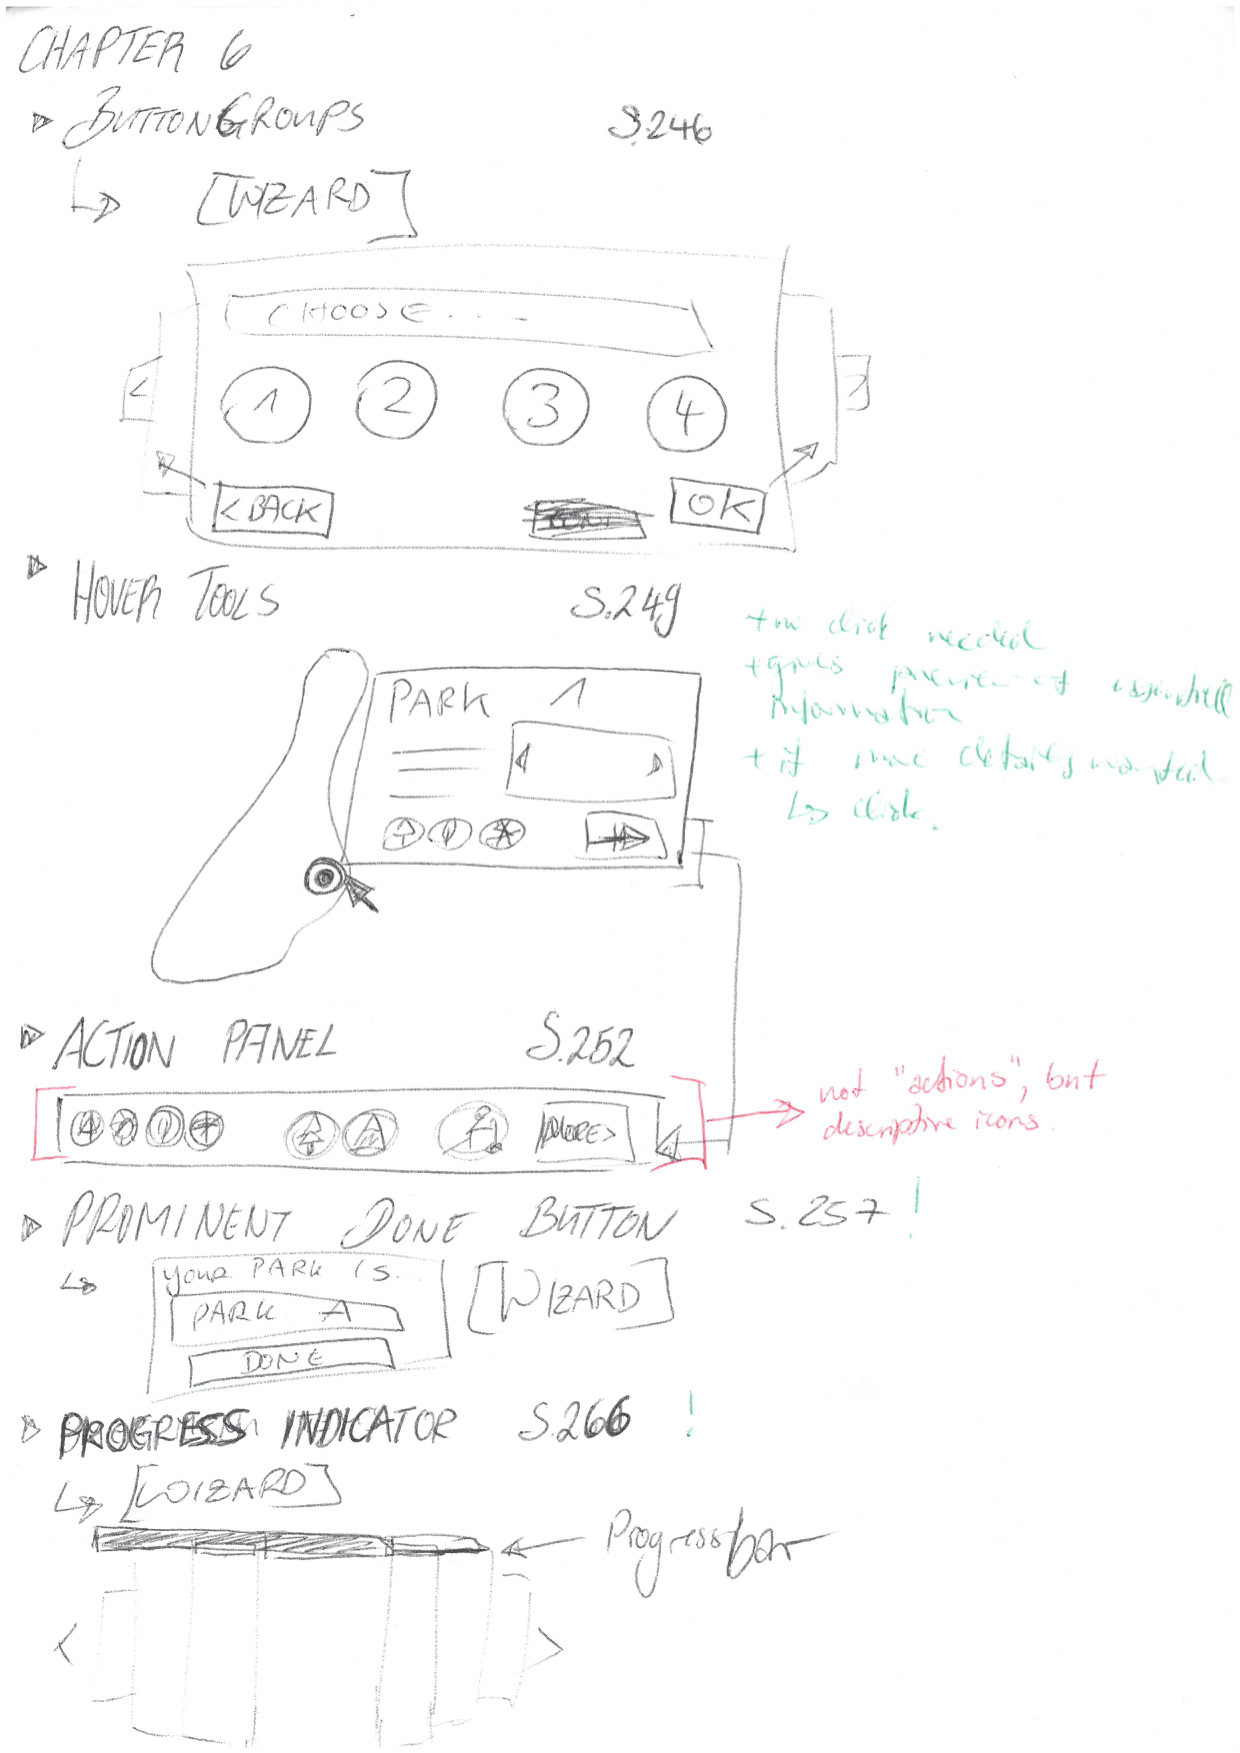 CHAPTER 6
BUTTON GROUPS S.246
[WIZARD]
CHOOSE...
< 1 2 3 4 >
< BACK OK
HOVER TOOLS S.249
+ no click needed
+ gives preview of essentiell
information
+ if more details wanted
↳ click.
PARK 1
ACTION PANEL S.252
not "actions", but
descriptive icons.
MORE >
PROMINENT DONE BUTTON S.257 !
YOUR PARK IS... [WIZARD]
PARK A
DONE
PROGRESS INDICATOR S.266 !
[WIZARD]
Progressbar
< >